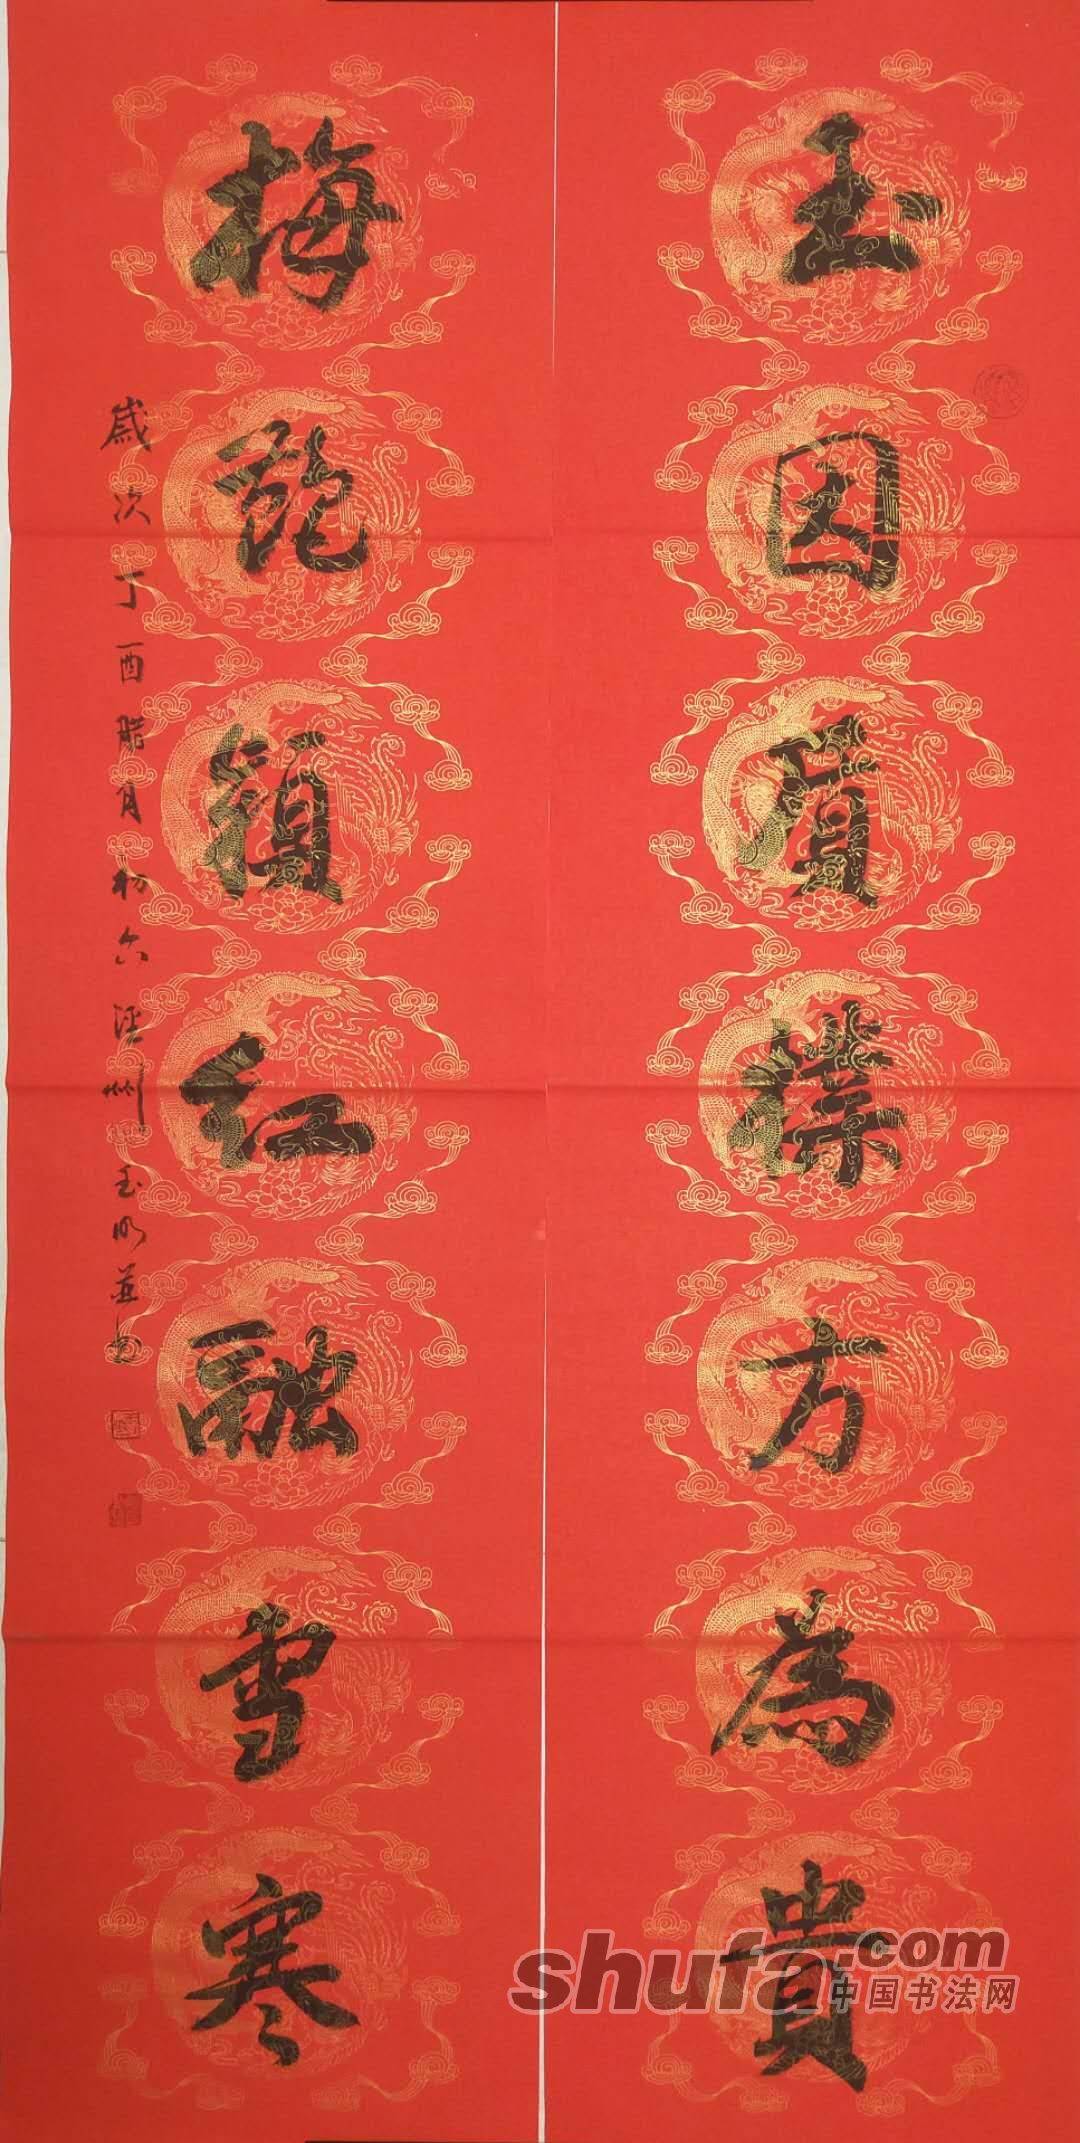 玉因質樸方為貴
梅紅融雪寒
歲次丁酉臘月初六涇州玉明並书
shufa.com
中国书法网